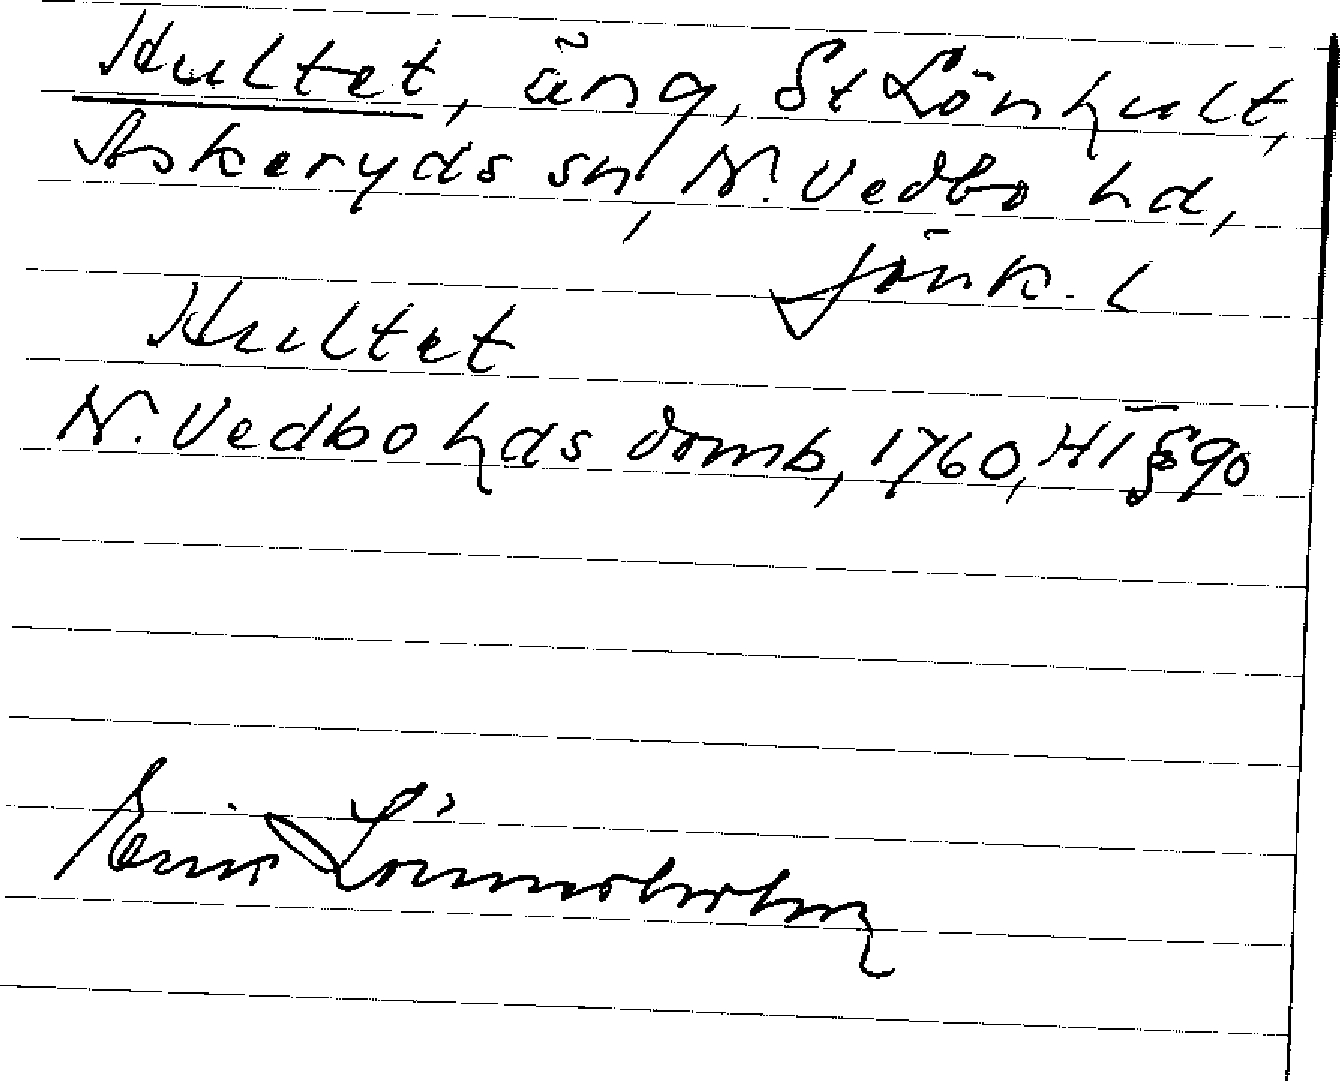 Hultet, äng, St Lönhult,
Askeryds sn, N. Vedbo hd,
Jönk. l
Hultet
N. Vedbo hds domb, 1760, HT §90
Erik Lönnerholm